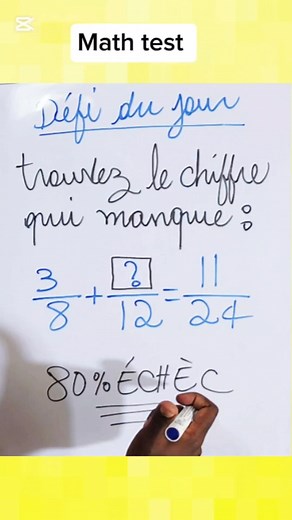 Math test
Défi du jour
trouvez le chiffre
qui manque :
3/8 + ?/12 = 11/24
80% ÉCHÈC